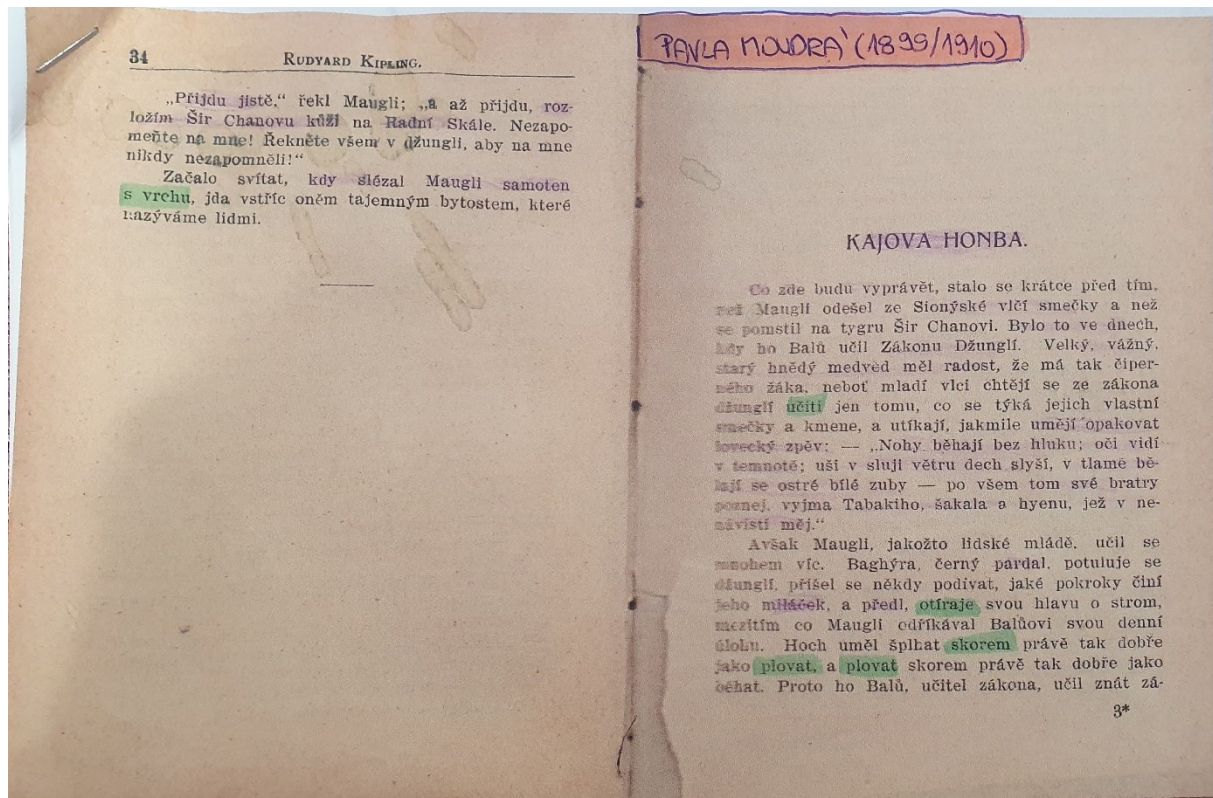 34
RUDYARD KIPLING.
„Přijdu jistě,“ řekl Maugli; „a až přijdu, roz-
ložím Šir Chanovu kůži na Radní Skále. Nezapo-
meňte na mne! Řekněte všem v džungli, aby na mne
nikdy nezapomněli!“
Začalo svítat, kdy slézal Maugli samoten
s vrchu, jda vstříc oněm tajemným bytostem, které
nazýváme lidmi.
PAVLA MOUDRÁ (1899/1910)
KAJOVA HONBA.
Co zde budu vyprávět, stalo se krátce před tím,
než Maugli odešel ze Sionýské vlčí smečky a než
se pomstil na tygru Šir Chanovi. Bylo to ve dnech,
kdy ho Balů učil Zákonu Džunglí. Velký, vážný,
starý hnědý medvěd měl radost, že má tak čiper-
ného žáka, neboť mladí vlci chtějí se ze zákona
džunglí učiti jen tomu, co se týká jejich vlastní
smečky a kmene, a utíkají, jakmile umějí opakovat
lovecký zpěv: — „Nohy běhají bez hluku; oči vidí
v temnotě; uši v sluji větru dech slyší, v tlamě bě-
lají se ostré bílé zuby — po všem tom své bratry
poznej, vyjma Tabakiho, šakala a hyenu, jež v ne-
návisti měj.“
Avšak Maugli, jakožto lidské mládě, učil se
mnohem víc. Baghýra, černý pardal, potuluje se
džunglí, přišel se někdy podívat, jaké pokroky činí
jeho miláček, a předl, otíraje svou hlavu o strom,
mezitím co Maugli odříkával Balůovi svou denní
úlohu. Hoch uměl šplhat skorem právě tak dobře
jako plovat, a plovat skorem právě tak dobře jako
běhat. Proto ho Balů, učitel zákona, učil znát zá-
3*